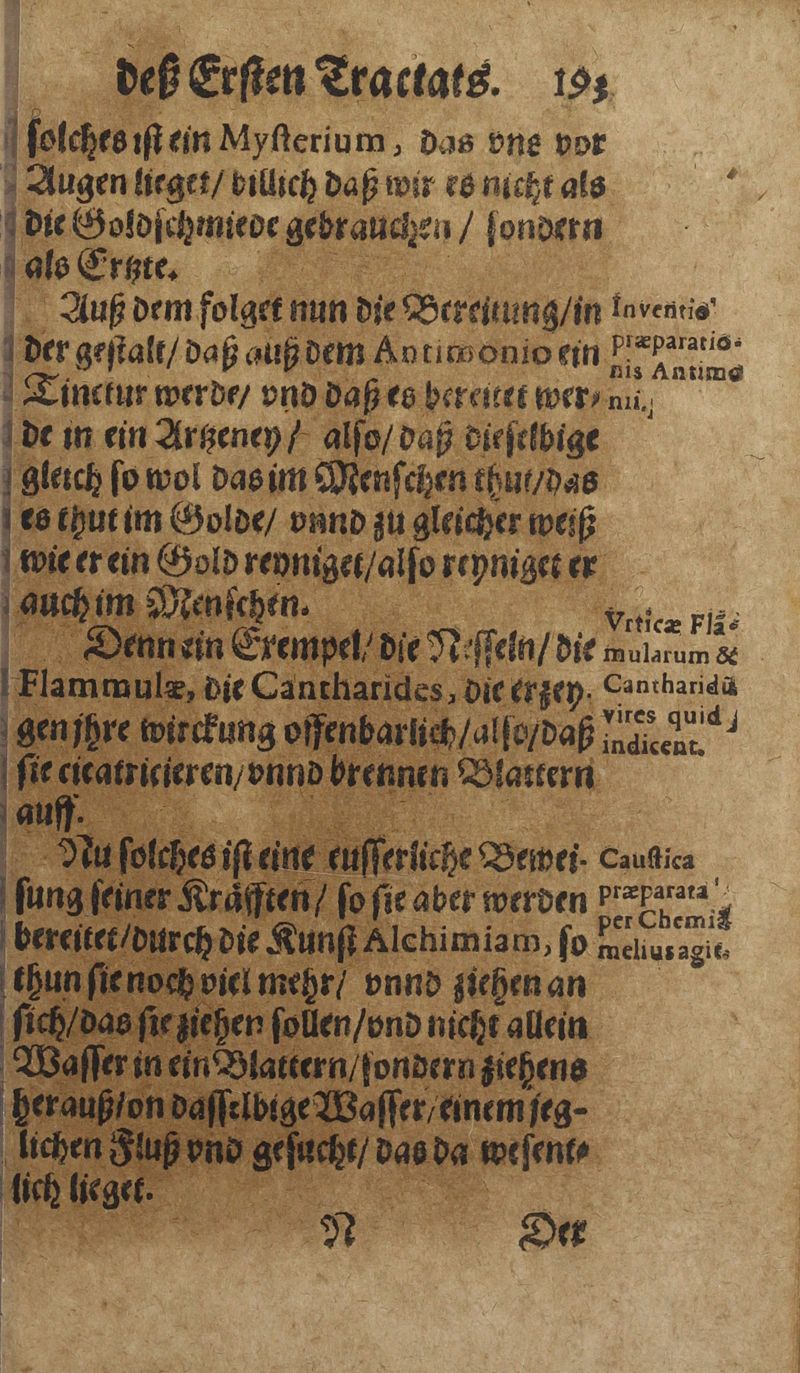 deß Ersten Tractats. 193
solches ist ein Mysterium, das vns vor
Augen lieget/ billich daß wir es nicht als
die Goldschmiede gebrauchen / sondern
als Ertzte.
Auß dem folget nun die Bereitung/in
der gestalt/ daß auß dem Antimonio ein
Tinctur werde/ vnd daß es bereitet wer-
de in ein Artzeney/ also/ daß dieselbige
gleich so wol das im Menschen thut/das
es thut im Golde/ vnnd zu gleicher weiß
wie er ein Gold reyniget/also reyniget er
auch im Menschen.
Inventio
præparatio-
nis Antimo
nii.
Denn ein Exempel/ die Nesseln/ die
Flammulæ, die Cantharides, die erzey-
gen jhre wirckung offenbarlich/also/daß
sie cicatricieren/vnnd brennen Blattern
auff.
Vrticæ Flã-
mularum &
Cantharidũ
vires quid
indicent.
Nu solches ist eine eusserliche Bewei-
sung seiner Kräfften/ so sie aber werden
bereitet/durch die Kunst Alchimiam, so
thun sie noch viel mehr/ vnnd ziehen an
sich/das sie ziehen sollen/vnd nicht allein
Wasser in ein Blattern/sondern ziehens
herauß/on dasselbige Wasser/einem jeg-
lichen Fluß vnd gesucht/ das da wesent-
lich lieget.
Caustica
præparata
per Chemiã
melius agit.
N Der